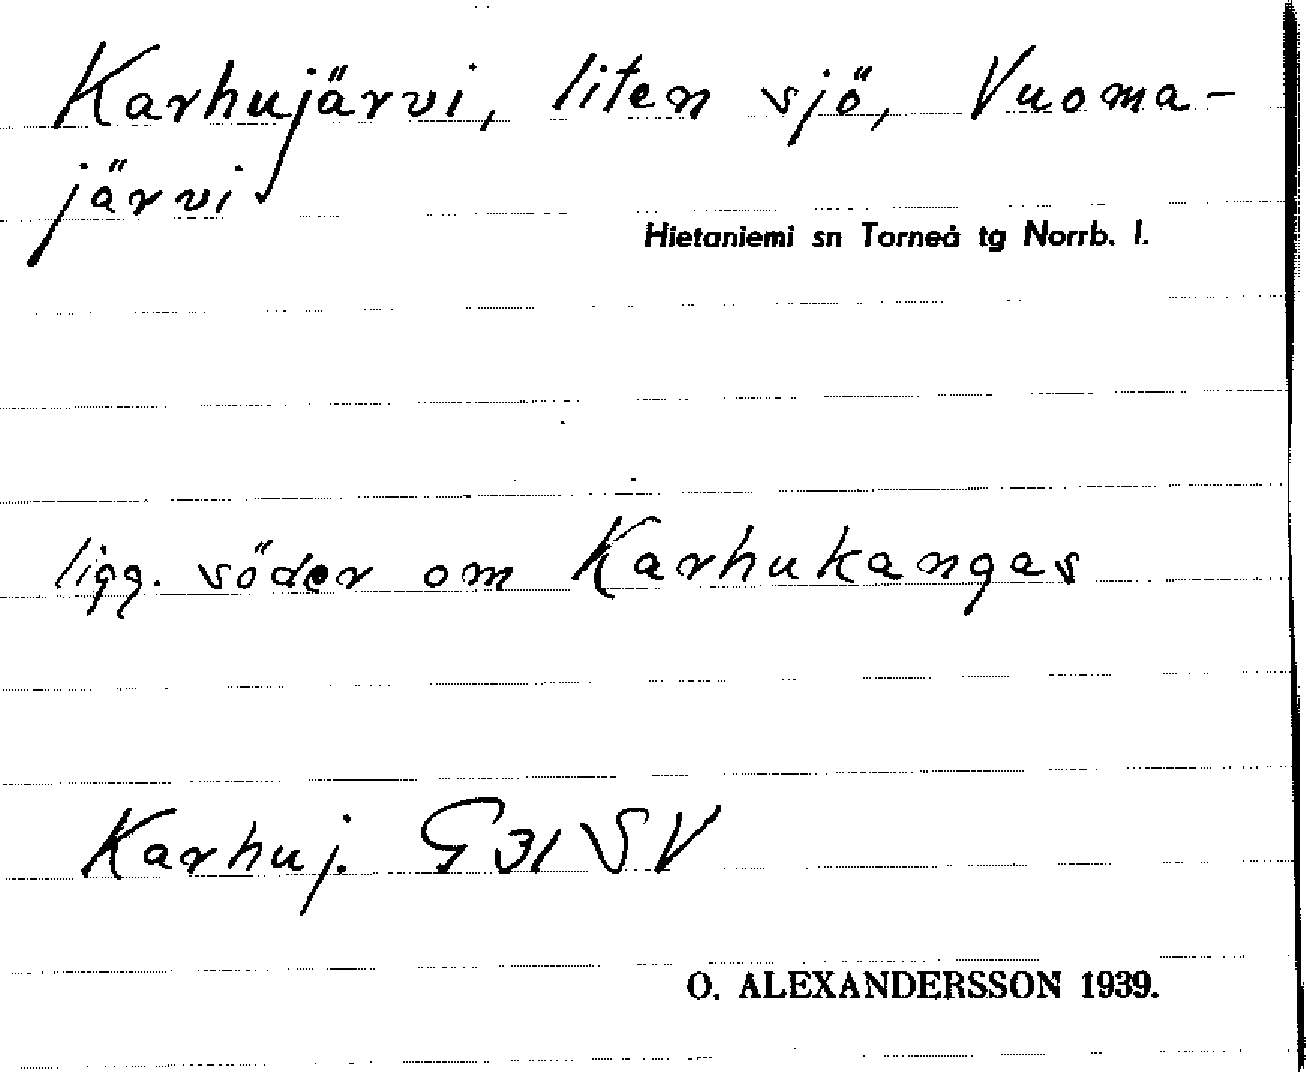 Karhujärvi, liten sjö, Vuoma-
järvi
Hietaniemi sn Torneå tg Norrb. l.
ligg. söder om Karhukangas
Karhuj. G 31 SV
O. ALEXANDERSSON 1939.